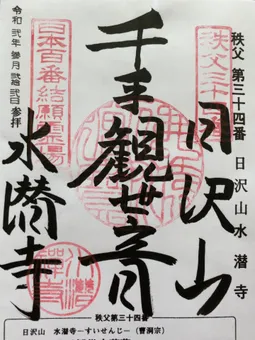 秩父 第三十四番 日沢山 水潜寺
日沢山
千手観世音
水潜寺
令和 弐年 参月 弐拾弐日 参拝
秩父三十四
日本百番結願霊場
秩父第三十四番
日沢山 水潜寺―すいせんじ―(曹洞宗)